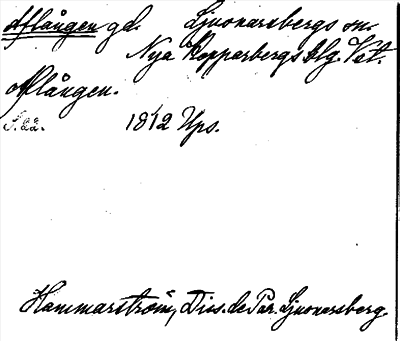 Aflången gd. Ljusnarsbergs sn.
Nya Kopparbergs blg. Vet.
Aflången.
S.åå. 1812 Ups.
Hammarström, Diss. de Par. Ljusnarsberg.